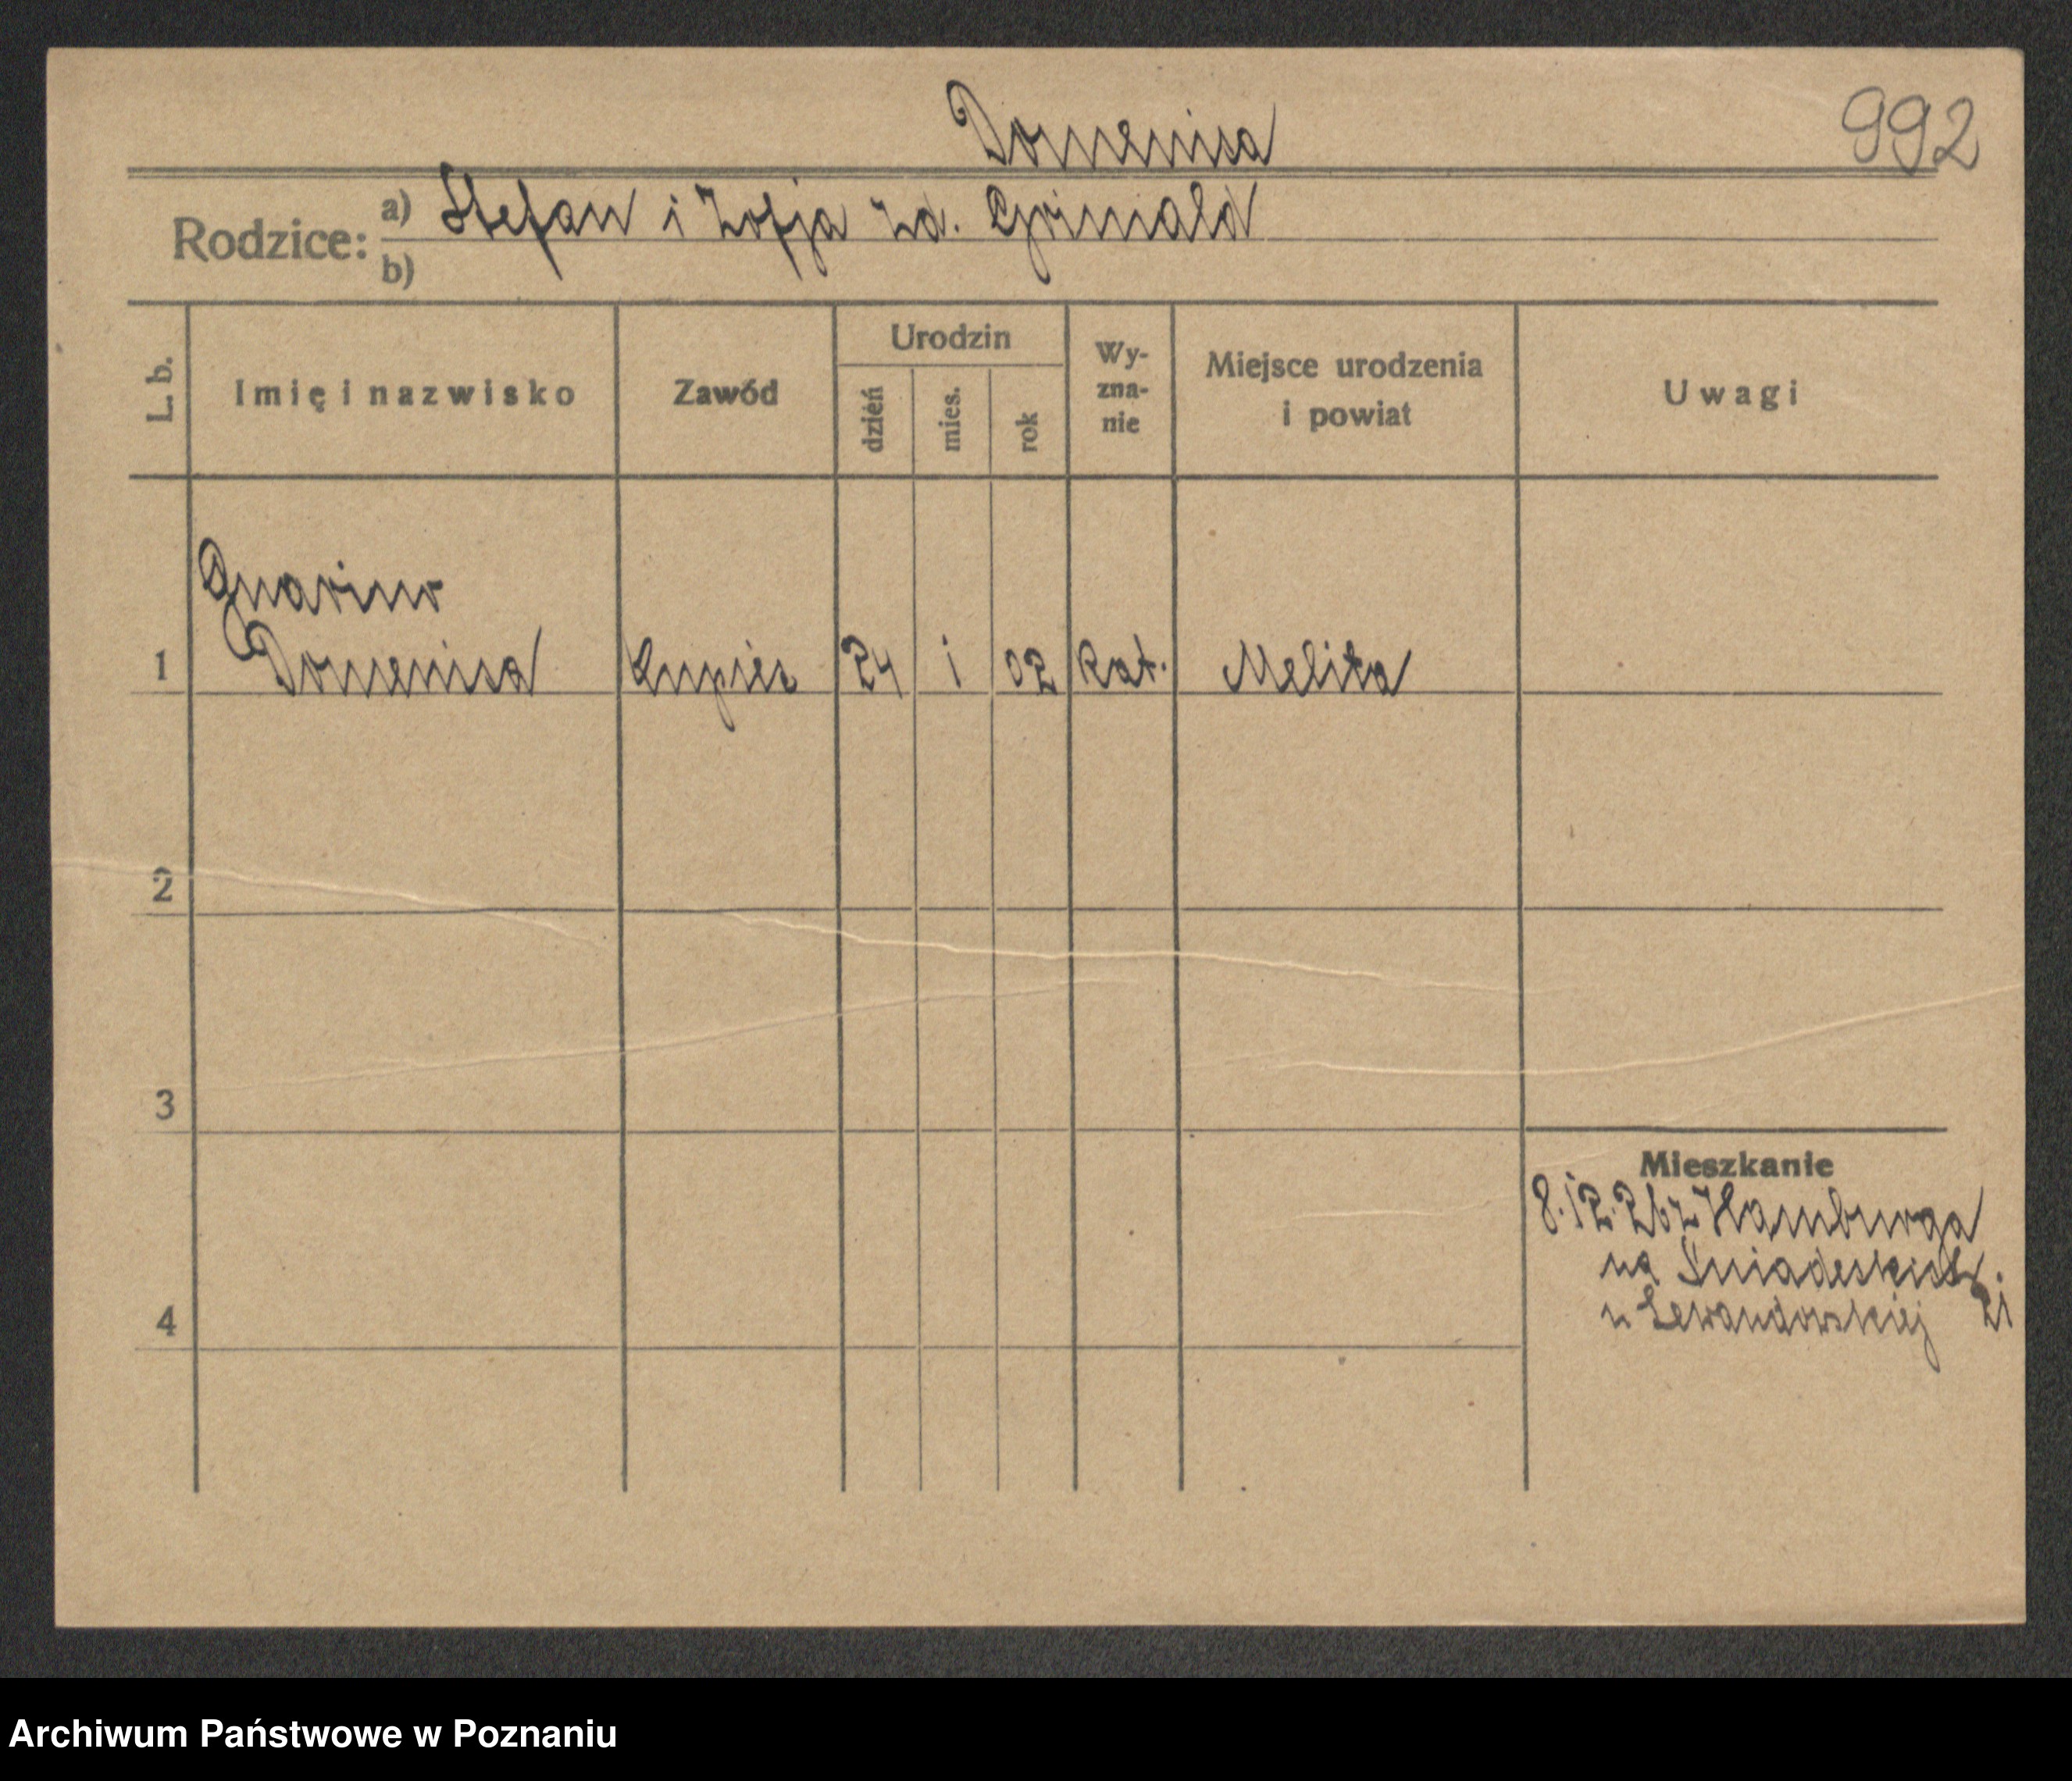 Domenisa
992
Rodzice: a) Stefan i Zofja zd. Grimald
b)
L. b.
Imię i nazwisko
Zawód
Urodzin
dzień
mies.
rok
Wy-
zna-
nie
Miejsce urodzenia
i powiat
Uwagi
Guarino
1 Domenisa kupiec 24 i 02 kat. Melita
2
3
Mieszkanie
8.12.26 z Hamburga
na Śniadeckich
21
4
u Lewandowskiej
Archiwum Państwowe w Poznaniu